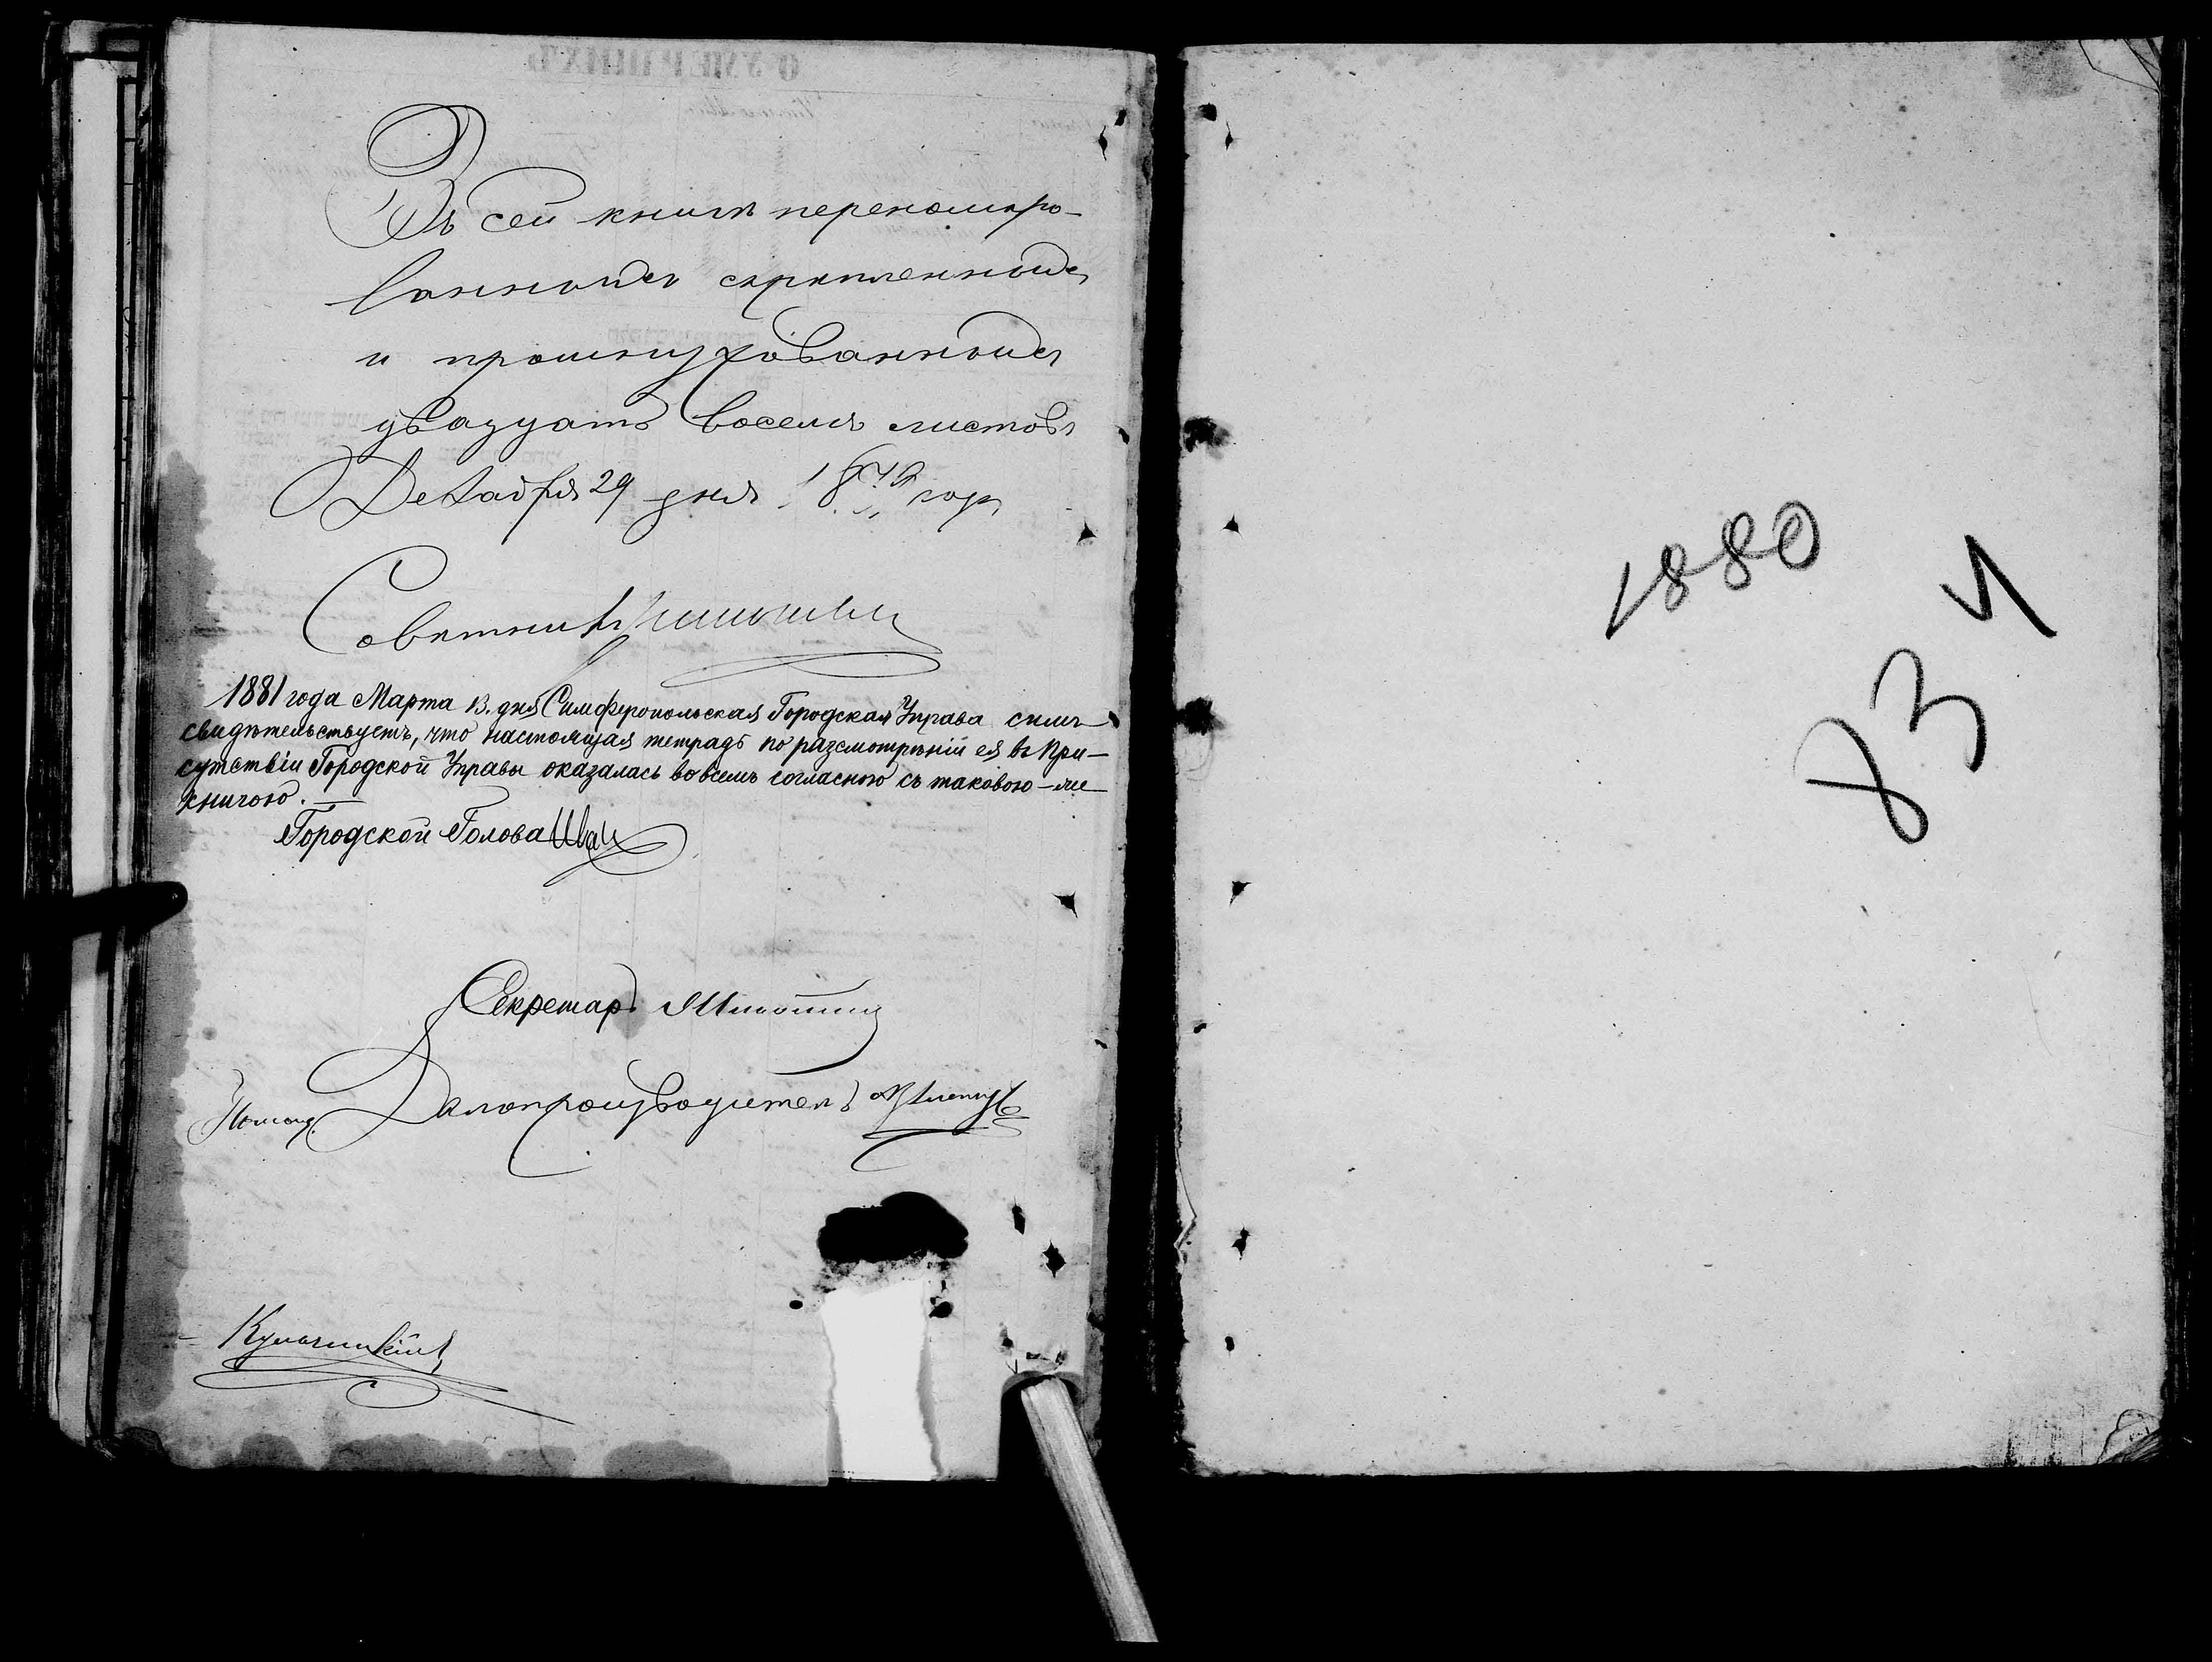 Въ сей книгѣ перенумеро-
ванныхъ скрѣпленныхъ
и прошнурованныхъ
двадцать восемь листовъ
Декабря 29 дня 1879 года
Совѣтникъ
1881 года Марта 13. дня Симферопольская Городская Управа симъ
свидѣтельствуетъ, что настоящая тетрадь по разсмотрѣніи ея въ При-
сутствіи Городской Управы оказалась вовсемъ согласною съ таковою-же
книгою.
Городской Голова
Секретарь
Помощ. Дѣлопроизводитель
1880
834